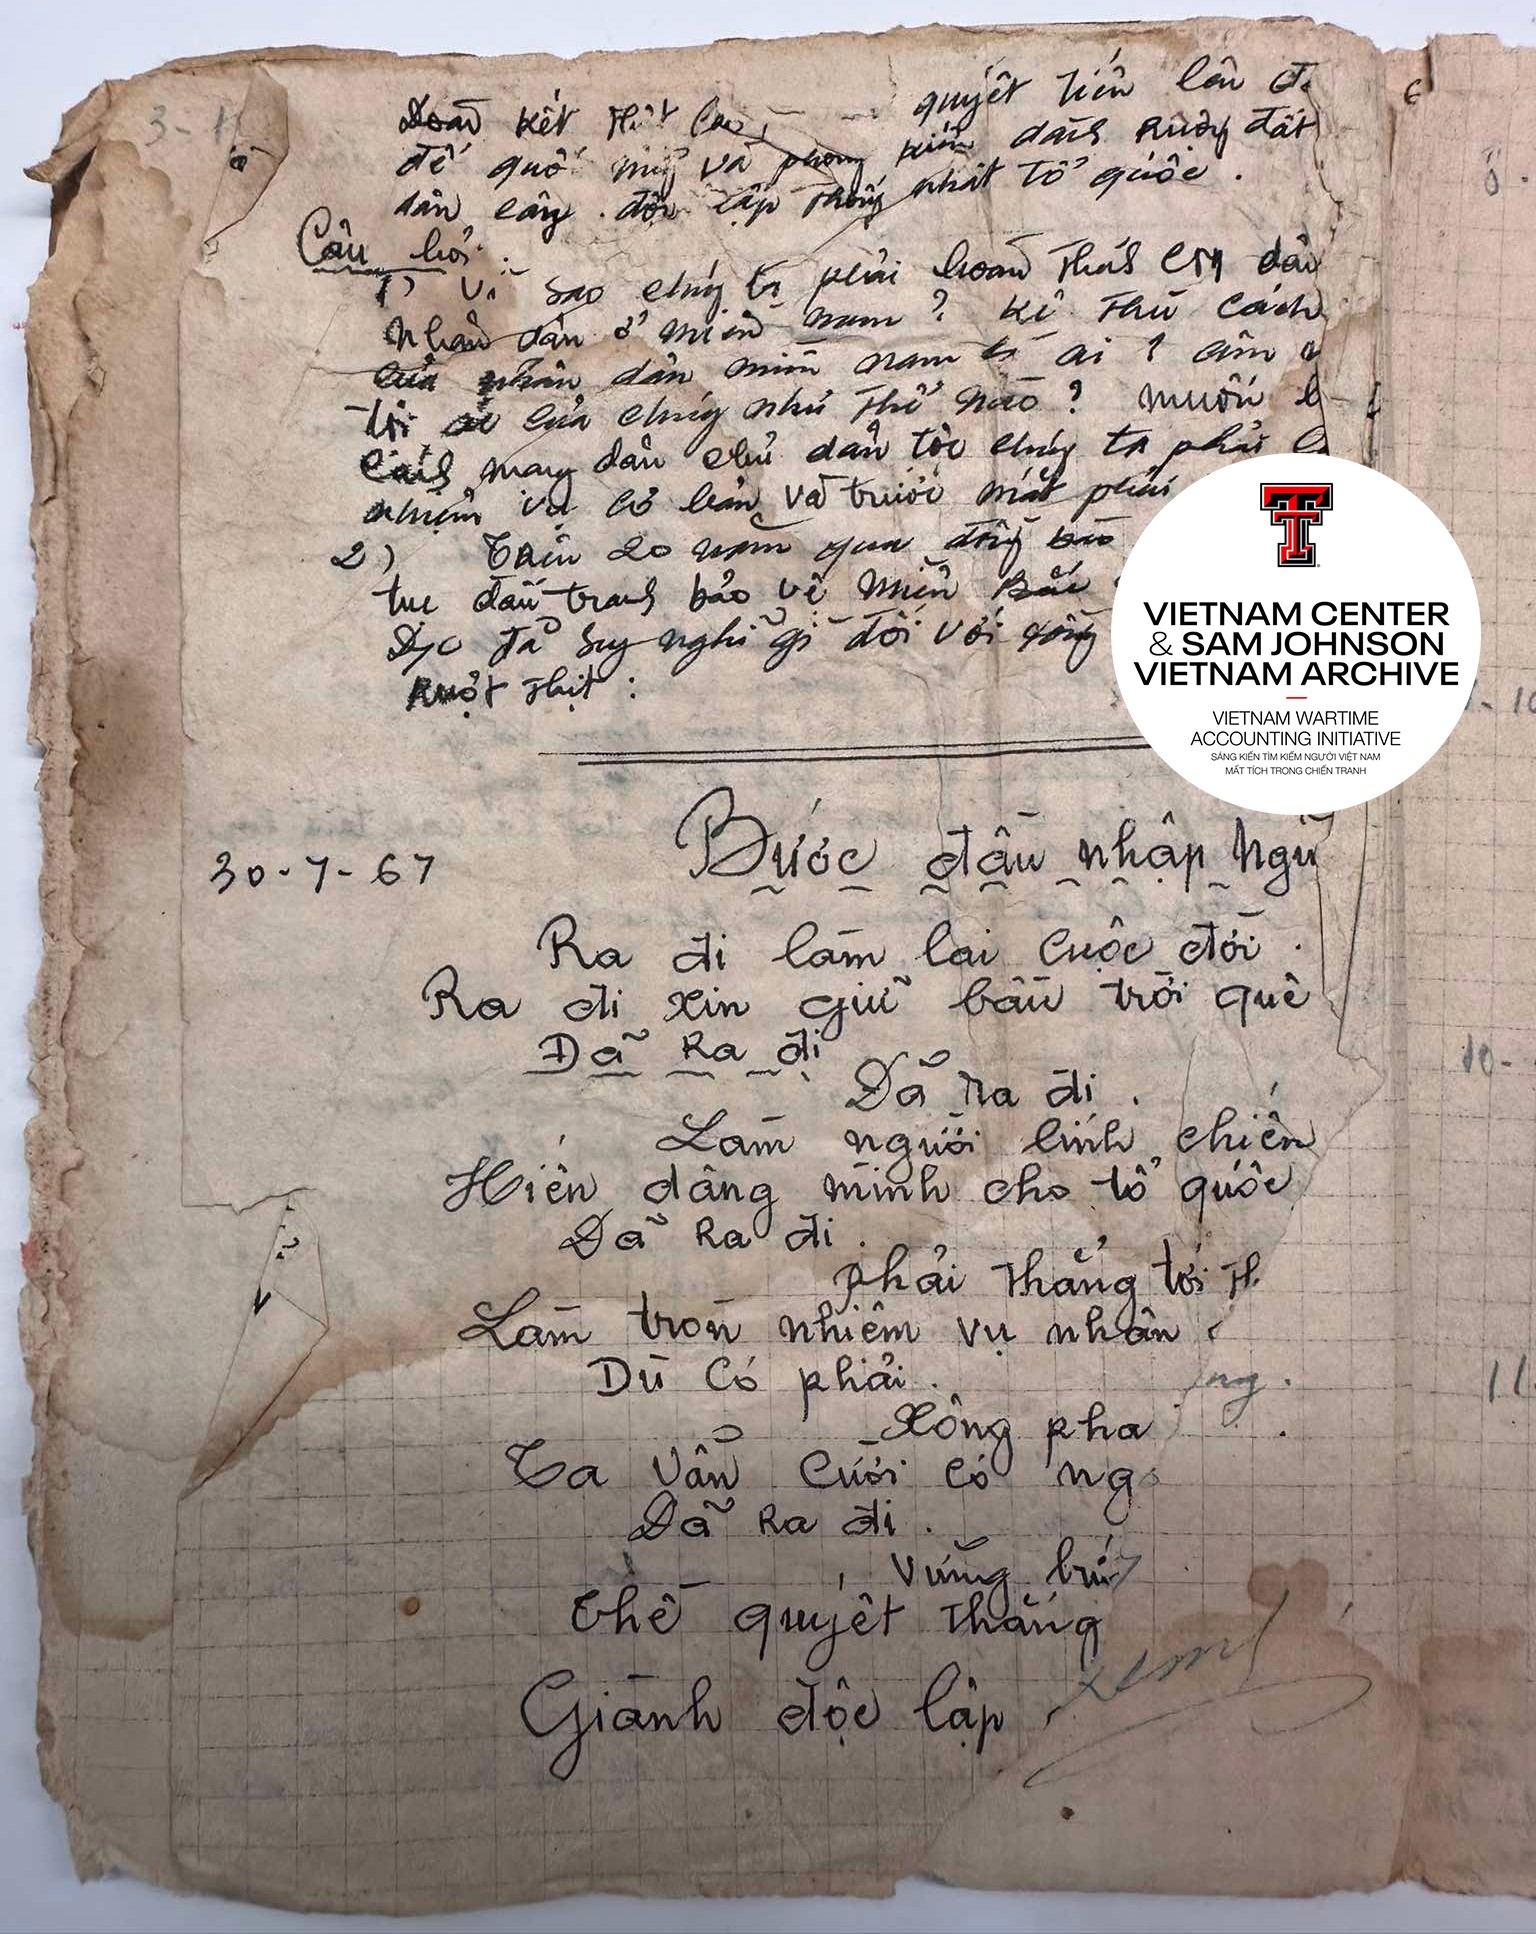 Đoàn kết thật quyết tiến lên
đế quốc mỹ và phong kiến dành ruộng đất
dân cày. độc lập thống nhất tổ quốc.
Câu hỏi:
1) Vì sao chúng ta phải hoàn thành dân
nhân dân ở miền nam? Kẻ thù cách
của nhân dân miền nam là ai? âm
của chúng như thế nào? muốn
cách mạng dân chủ dân tộc chúng ta phải
nhiệm vụ cơ bản và trước mắt phải
2) Trên 20 năm qua đồng bào
tục đấu tranh bảo vệ miền Bắc
Đ/c đã suy nghĩ gì đối với đồng
Ruột thịt:
30-7-67
Bước đầu nhập Ngũ
Ra đi làm lai cuộc đời.
Ra đi xin giữ bầu trời quê
Dã Ra đi
Dã Ra đi.
Làm người lính chiến
Hiến dâng mình cho tổ quốc
Dã Ra đi.
phải thẳng tới
Làm tròn nhiêm vụ nhân
Dù có phải.
Xông pha
Ta vẫn cười có
Dã Ra đi.
vững
Thề quyết thắng
Giành độc lập
3-
10
10-
11
VIETNAM CENTER
& SAM JOHNSON
VIETNAM ARCHIVE
VIETNAM WARTIME
ACCOUNTING INITIATIVE
SÁNG KIẾN TÌM KIẾM NGƯỜI VIỆT NAM
MẤT TÍCH TRONG CHIẾN TRANH